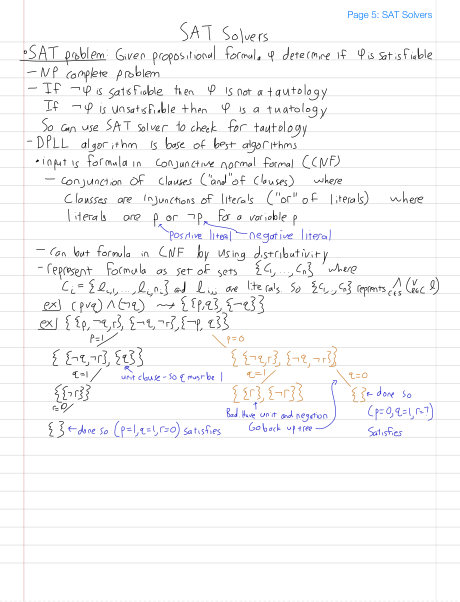 Page 5: SAT Solvers
SAT Solvers
•SAT problem: Given propositional formula φ determine if φ is satisfiable
- NP complete problem
- If ¬φ is satsfiable then φ is not a tautology
If ¬φ is unsatisfiable then φ is a tuatology
So can use SAT solver to check for tautology
- DPLL algorithm is base of best algorithms
• input is formula in conjunctive normal formal (CNF)
- conjunction of clauses ("and" of clauses) where
Claussses are injunctions of literals ("or" of literals) where
literals are p or ¬p for a variable p
positive literal negative literal
- Can but formula in CNF by using distributivity
- represent formula as set of sets {C₁,...,Cₙ} where
Cᵢ = {ℓᵢ,₁,...,ℓᵢ,nᵢ} and ℓᵢ,ⱼ are literals. So {C₁,...,Cₙ} represents ∧ (∨ ℓ)
ex| (p∨q)∧(¬q) ⇝ {{p,q},{¬q}}
ex| {{p,¬q,r},{¬q,¬r},{¬p,q}}
p=1 p=0
{{¬q,¬r},{q}} {{¬q,r},{¬q,¬r}}
q=1 unit clause - so q must be 1 q=1 q=0
{{¬r}} {{r},{¬r}} {} ← done so
r=0 Bad. Have unit and negation (p=0,q=1,r=?)
Go back up tree
{} ← done so (p=1,q=1,r=0) satisfies Satisfies